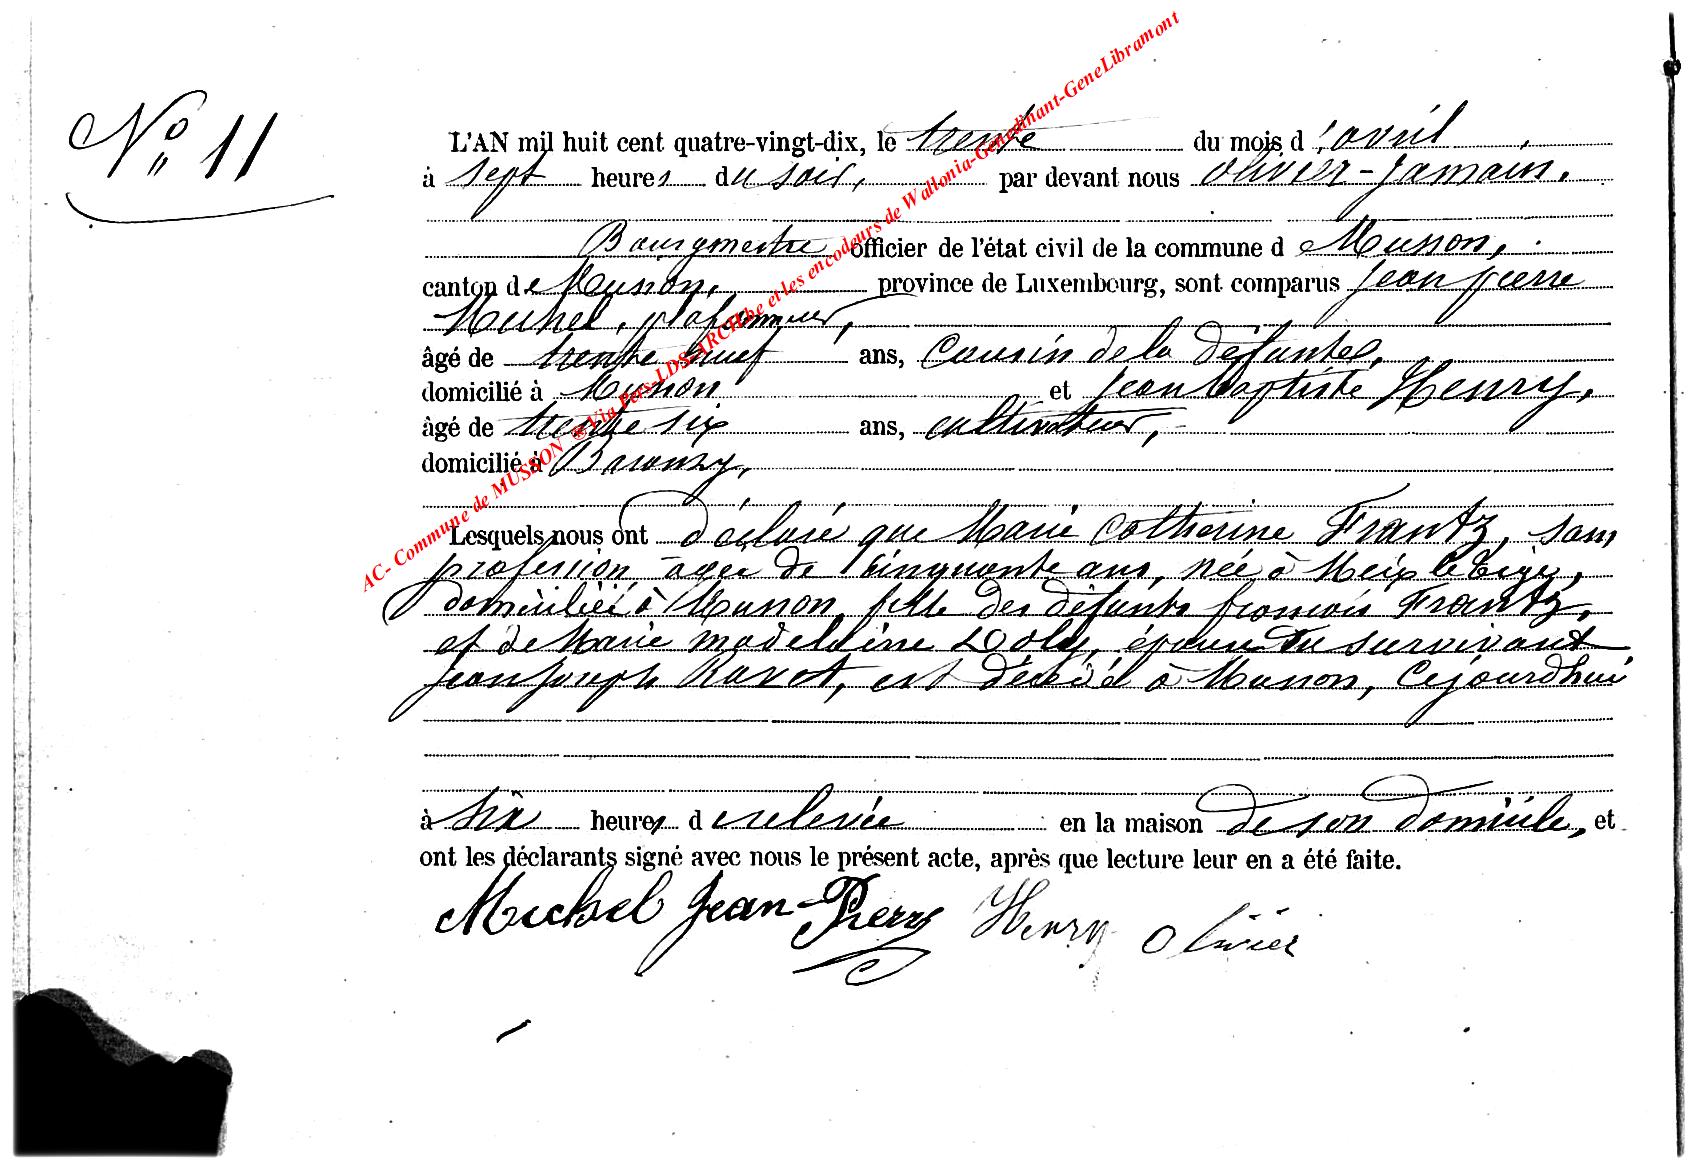 N° 11
L'AN mil huit cent quatre-vingt-dix, le trente du mois d'avril
à sept heures du soir, par devant nous Olivier-Jamain.
Bourgmestre officier de l'état civil de la commune de Musson,
canton de Musson, province de Luxembourg, sont comparus Jean pierre
Michel, plafonneur,
âgé de trente neuf ans, Cousin de la défunte,
domicilié à Musson et Jean baptiste Henry,
âgé de trente six ans, cultivateur,
domicilié à Baranzy,
Lesquels nous ont déclaré que Marie Catherine Frantz, sans
profession, agée de Cinquante ans, née à Meix le tige,
domiciliée à Musson, fille des défunts françois Frantz,
et de Marie madelaine Doly, épouse du survivant
Jean Joseph Ravet, est décédée à Musson, Cejourdhui
à six heures de relevée en la maison de son domicile, et
ont les déclarants signé avec nous le présent acte, après que lecture leur en a été faite.
Michel Jean-Pierre Henry Olivier
AC- Commune de MUSSON ®Via Pers-LDS-ARCHbe et les encodeurs de Wallonia-Genedinant-GeneLibramont